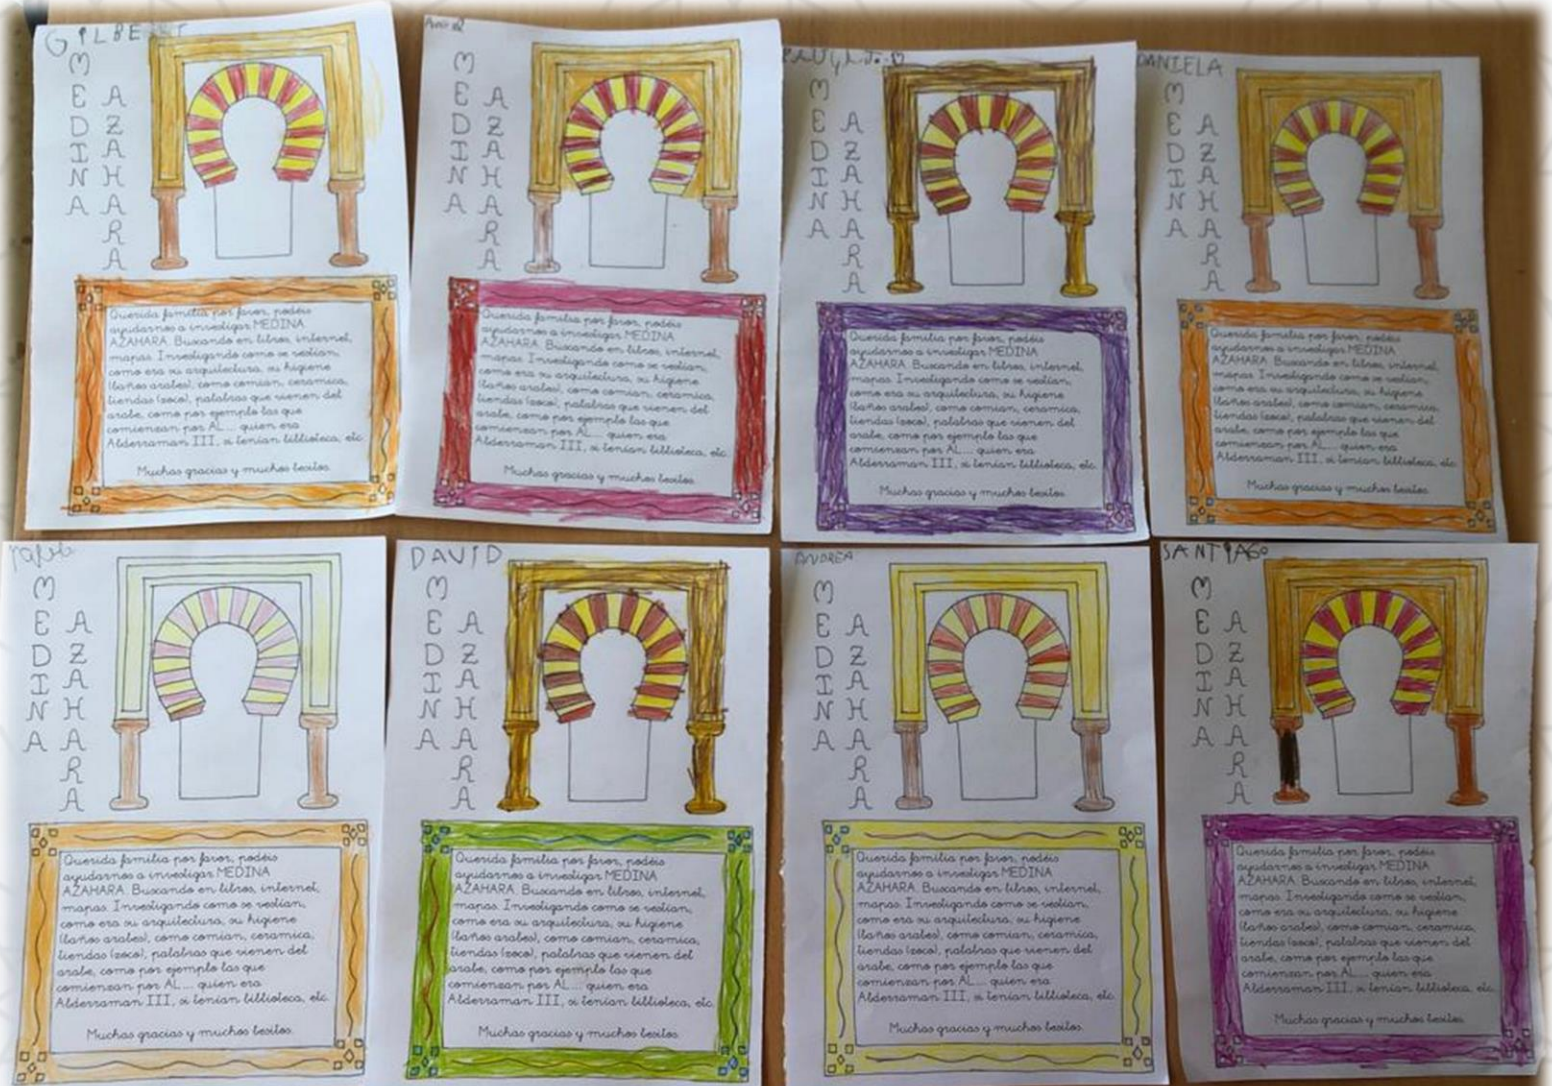 GILBERT
MEDINA
AZAHARA
Querida familia por favor, podéis
ayudarnos a investigar MEDINA
AZAHARA. Buscando en libros, internet,
mapas. Investigando como se vestian,
como era su arquitectura, su higiene
(baños arabes), como comian, ceramica,
tiendas (zoco), palabras que vienen del
arabe, como por ejemplo las que
comienzan por AL.... quien era
Abderraman III, si tenian biblioteca, etc.
Muchas gracias y muchos besitos.
MEDINA
AZAHARA
Querida familia por favor, podéis
ayudarnos a investigar MEDINA
AZAHARA. Buscando en libros, internet,
mapas. Investigando como se vestian,
como era su arquitectura, su higiene
(baños arabes), como comian, ceramica,
tiendas (zoco), palabras que vienen del
arabe, como por ejemplo las que
comienzan por AL.... quien era
Abderraman III, si tenian biblioteca, etc.
Muchas gracias y muchos besitos.
MEDINA
AZAHARA
Querida familia por favor, podéis
ayudarnos a investigar MEDINA
AZAHARA. Buscando en libros, internet,
mapas. Investigando como se vestian,
como era su arquitectura, su higiene
(baños arabes), como comian, ceramica,
tiendas (zoco), palabras que vienen del
arabe, como por ejemplo las que
comienzan por AL.... quien era
Abderraman III, si tenian biblioteca, etc.
Muchas gracias y muchos besitos.
DANIELA
MEDINA
AZAHARA
Querida familia por favor, podéis
ayudarnos a investigar MEDINA
AZAHARA. Buscando en libros, internet,
mapas. Investigando como se vestian,
como era su arquitectura, su higiene
(baños arabes), como comian, ceramica,
tiendas (zoco), palabras que vienen del
arabe, como por ejemplo las que
comienzan por AL.... quien era
Abderraman III, si tenian biblioteca, etc.
Muchas gracias y muchos besitos.
MEDINA
AZAHARA
Querida familia por favor, podéis
ayudarnos a investigar MEDINA
AZAHARA. Buscando en libros, internet,
mapas. Investigando como se vestian,
como era su arquitectura, su higiene
(baños arabes), como comian, ceramica,
tiendas (zoco), palabras que vienen del
arabe, como por ejemplo las que
comienzan por AL.... quien era
Abderraman III, si tenian biblioteca, etc.
Muchas gracias y muchos besitos.
DAVID
MEDINA
AZAHARA
Querida familia por favor, podéis
ayudarnos a investigar MEDINA
AZAHARA. Buscando en libros, internet,
mapas. Investigando como se vestian,
como era su arquitectura, su higiene
(baños arabes), como comian, ceramica,
tiendas (zoco), palabras que vienen del
arabe, como por ejemplo las que
comienzan por AL.... quien era
Abderraman III, si tenian biblioteca, etc.
Muchas gracias y muchos besitos.
ANDREA
MEDINA
AZAHARA
Querida familia por favor, podéis
ayudarnos a investigar MEDINA
AZAHARA. Buscando en libros, internet,
mapas. Investigando como se vestian,
como era su arquitectura, su higiene
(baños arabes), como comian, ceramica,
tiendas (zoco), palabras que vienen del
arabe, como por ejemplo las que
comienzan por AL.... quien era
Abderraman III, si tenian biblioteca, etc.
Muchas gracias y muchos besitos.
SANTIAGO
MEDINA
AZAHARA
Querida familia por favor, podéis
ayudarnos a investigar MEDINA
AZAHARA. Buscando en libros, internet,
mapas. Investigando como se vestian,
como era su arquitectura, su higiene
(baños arabes), como comian, ceramica,
tiendas (zoco), palabras que vienen del
arabe, como por ejemplo las que
comienzan por AL.... quien era
Abderraman III, si tenian biblioteca, etc.
Muchas gracias y muchos besitos.